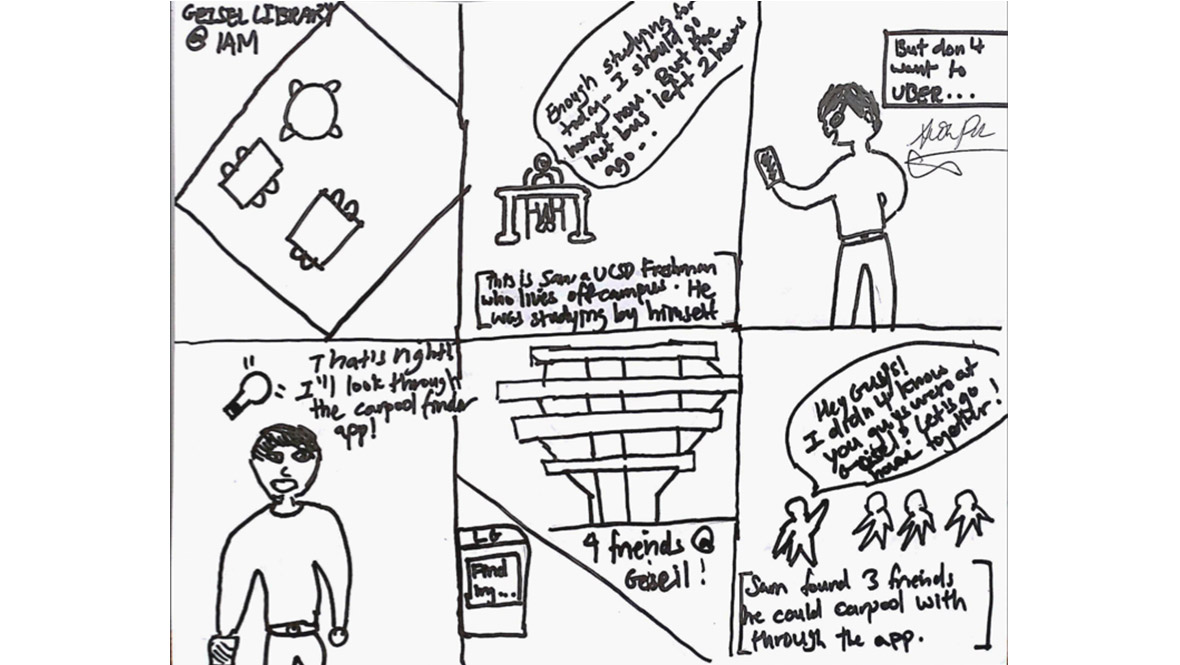 GEISEL LIBRARY
@ 1AM
Enough studying for
today... I should go
home now. But the
last bus left 2 hours
ago...
This is Sam a UCSD Freshman
who lives off campus. He
was studying by himself
But don't
want to
UBER...
That's right!
I'll look through
the carpool finder
app!
LG
Find
my...
4 friends @
Geiseil!
Hey Guys!
I didn't know
you guys were at
Geisel! Let's go
home together!
Sam found 3 friends
he could carpool with
through the app.